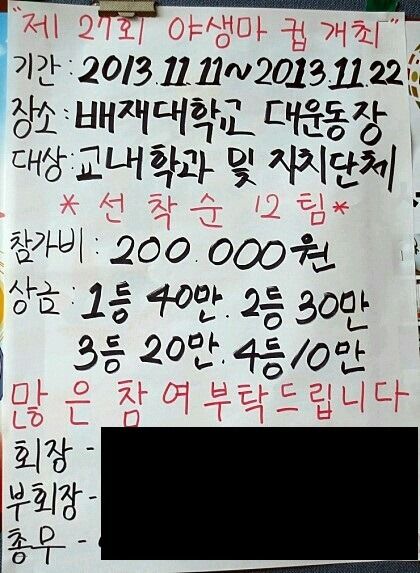 "제 27회 야생마 컵 개최"
기간 : 2013.11.11~2013.11.22
장소 : 배재대학교 대운동장
대상 : 교내학과 및 자치단체
*선착순 12팀*
참가비 : 200.000원
상금 : 1등 40만. 2등 30만
3등 20만. 4등 10만
많은 참여부탁드립니다
회장 -
부회장 -
총무 -